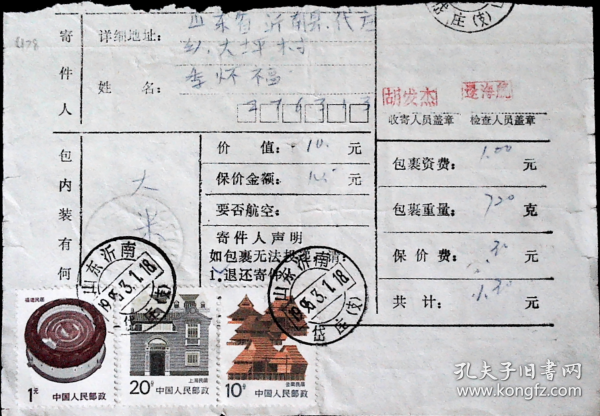 岱庄(支)
寄件人
详细地址:
山东省沂南县
大坪村
姓 名:
李怀福
276313
胡发杰
收寄人员盖章 检查人员盖章
包内装有何
大米
价 值: 10. 元
保价金额: 元
要否航空:
寄件人声明
如包裹无法投递
1.退还寄件
包裹资费: 1.00 元
包裹重量: 720 克
保 价 费: 元
共 计: 元
山东沂南
1995.3.1.18
岱庄(支)
山东沂南
1995.3.1.18
岱庄(支)
福建民居
1元
中国人民邮政
上海民居
20分
中国人民邮政
10分
中国人民邮政
孔夫子旧书网
www.kongfz.com